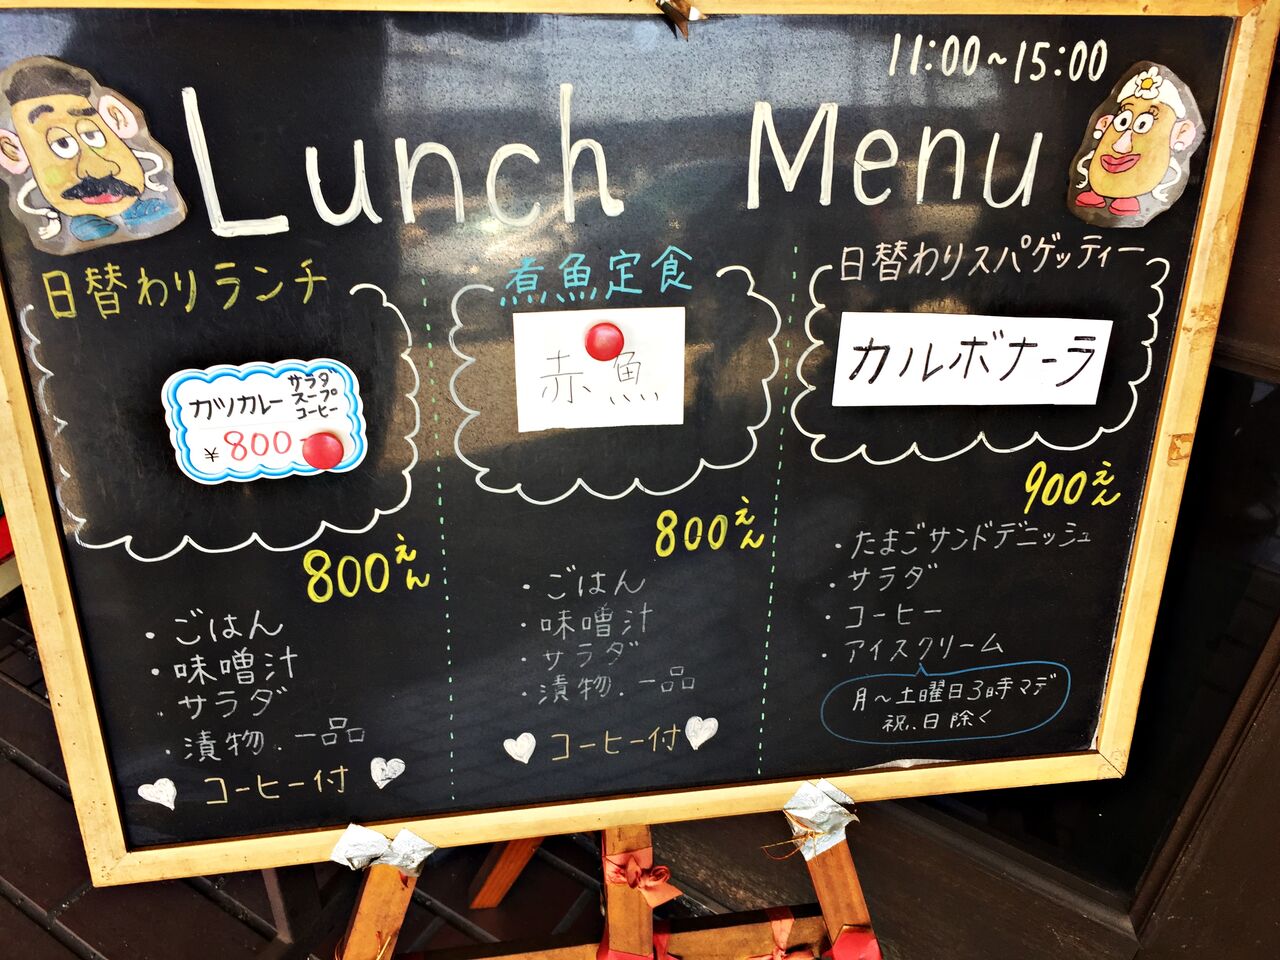 11:00~15:00
Lunch Menu
日替わりランチ
カツカレー
サラダ
スープ
コーヒー
¥800-
800えん
・ごはん
・味噌汁
・サラダ
・漬物.一品
コーヒー付
煮魚定食
赤魚
800えん
・ごはん
・味噌汁
・サラダ
・漬物.一品
コーヒー付
日替わりスパゲッティー
カルボナーラ
900えん
・たまごサンドデニッシュ
・サラダ
・コーヒー
・アイスクリーム
月~土曜日3時マデ
祝.日除く